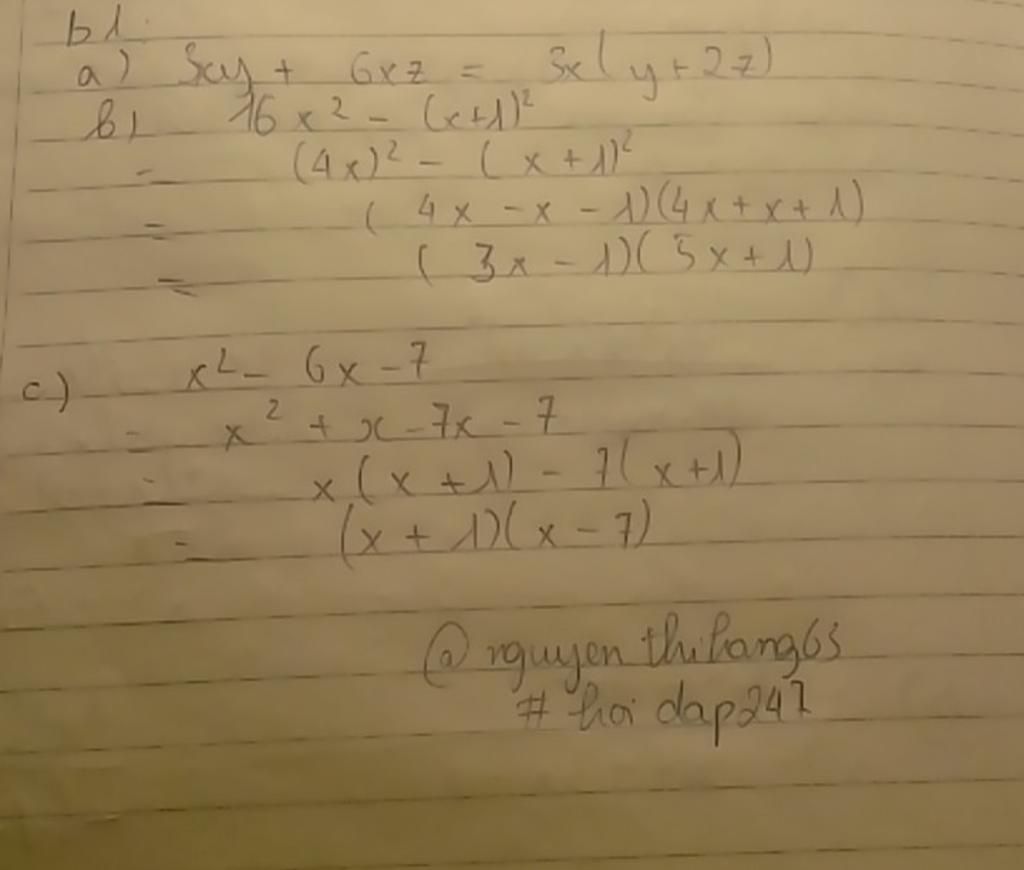 b1.
a) 3xy + 6xz = 3x(y+2z)
b) 16x² - (x+1)²
= (4x)² - (x+1)²
= (4x - x - 1)(4x + x + 1)
= (3x - 1)(5x + 1)
c) x² - 6x - 7
= x² + x - 7x - 7
= x(x + 1) - 7(x+1)
= (x + 1)(x - 7)
@nguyenthihang63
# hoidap247